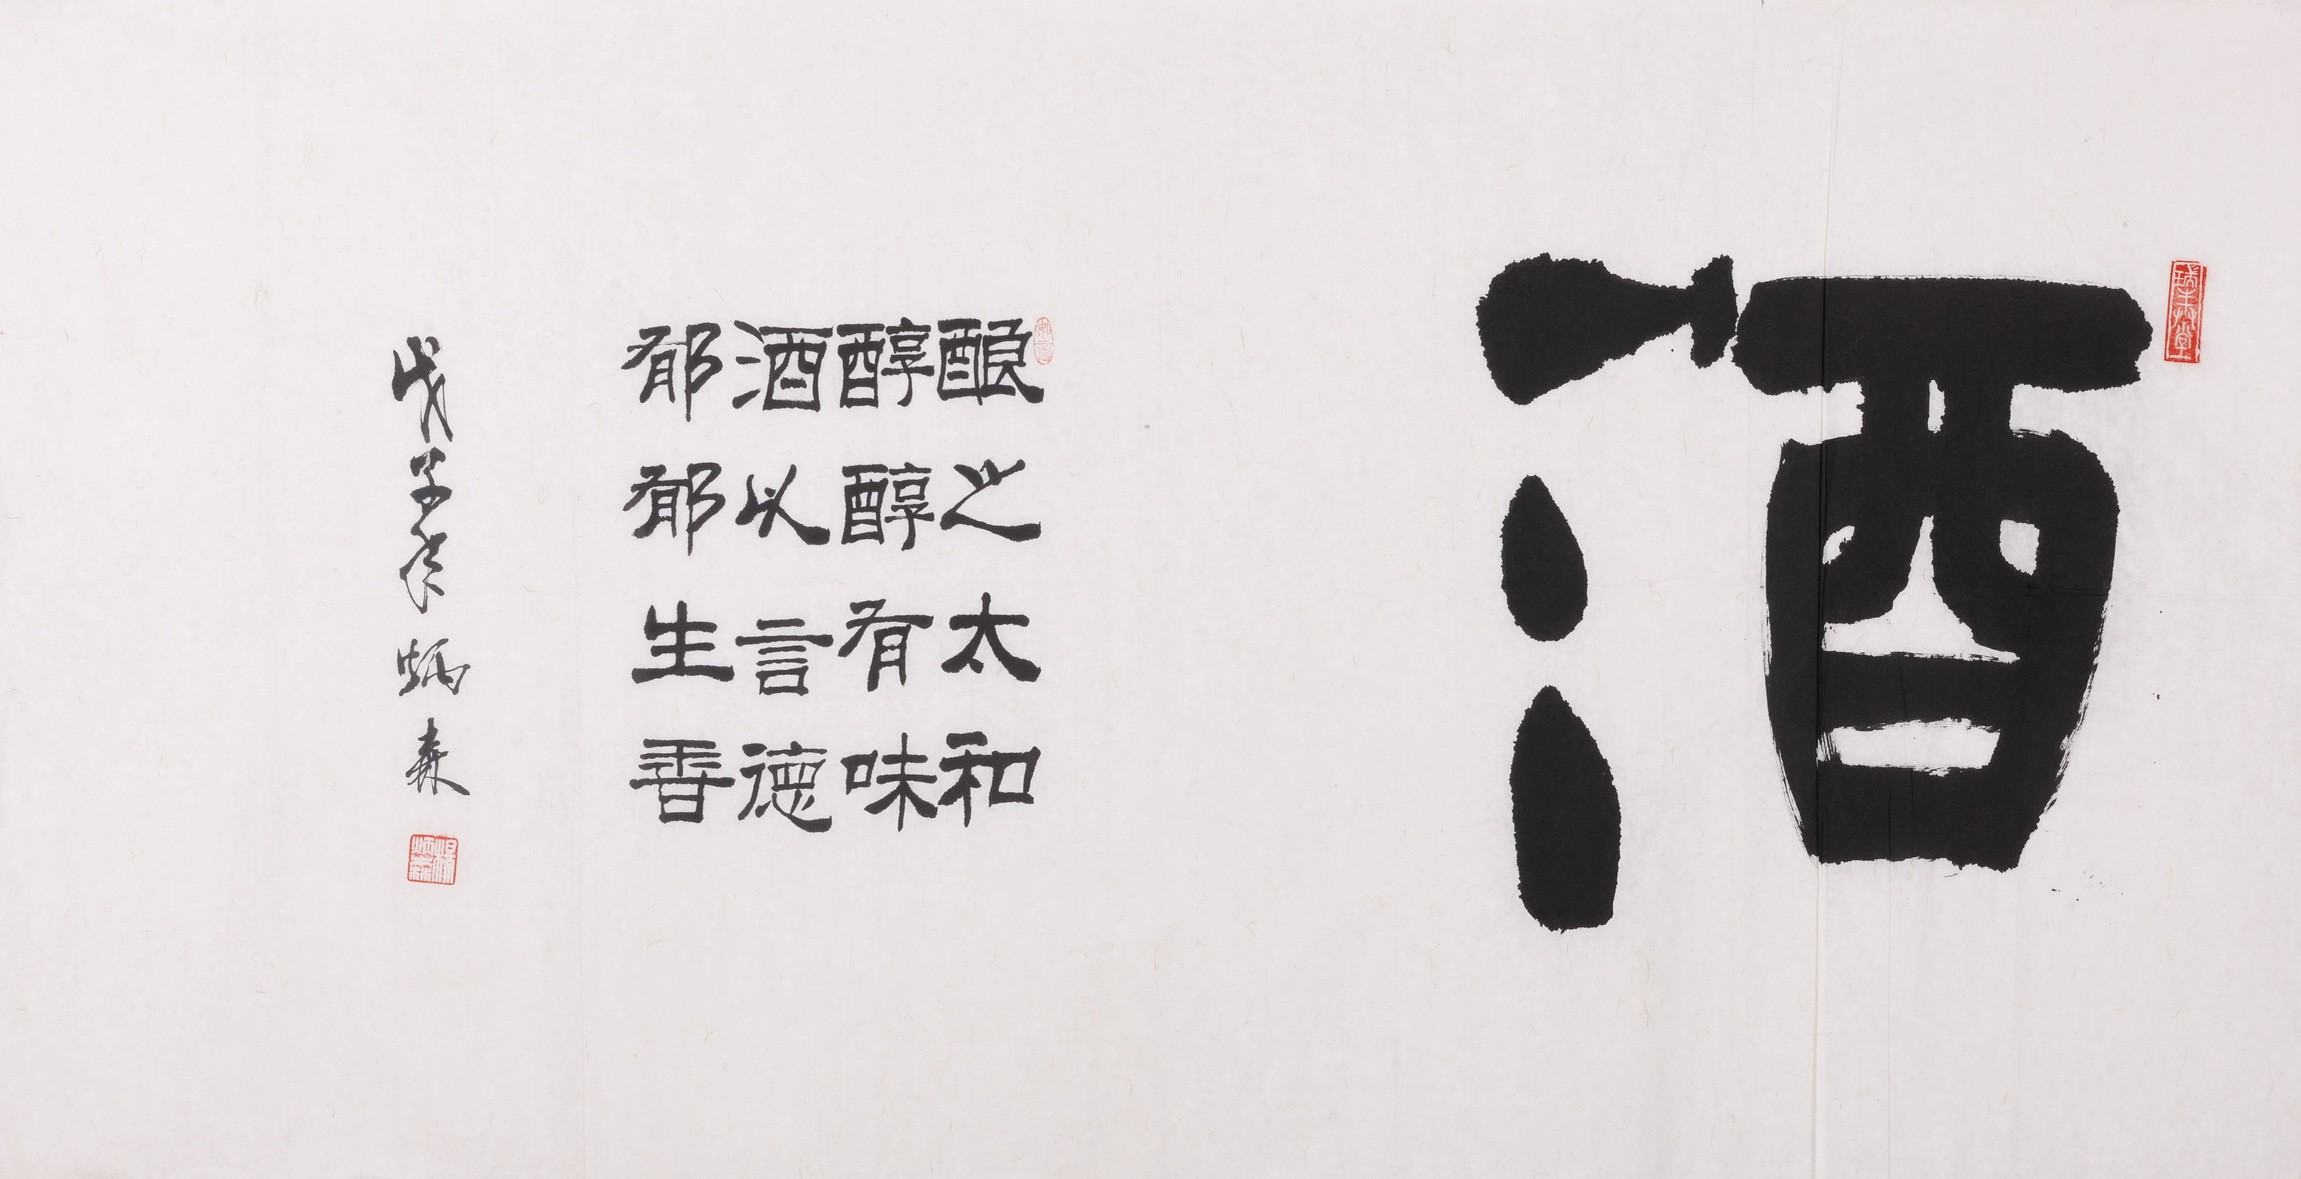 酒
酿之太和
醇醇有味
酒以言德
郁郁生香
戊子年炳森